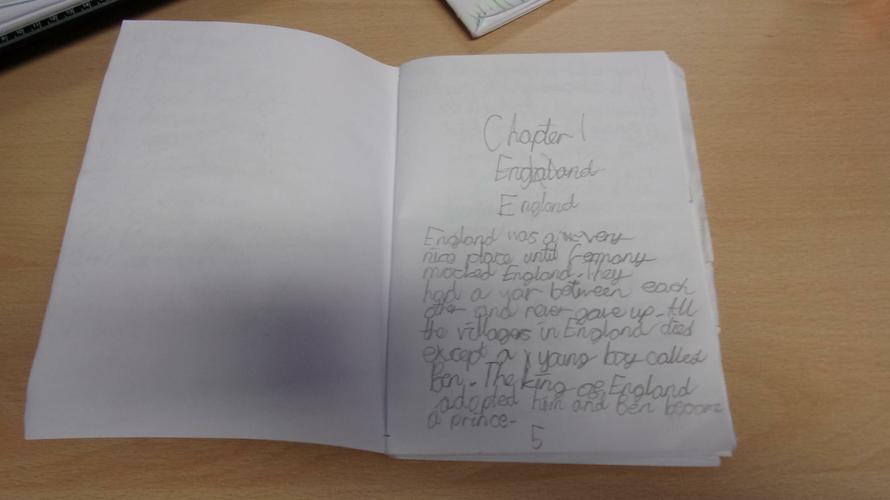 Chapter 1
England
England was a very
nice place until Germany
mocked England. They
had a war between each
other and never gave up. All
the villages in England died
except a young boy called
Ben. The king of England
adopted him and Ben become
a prince.
5